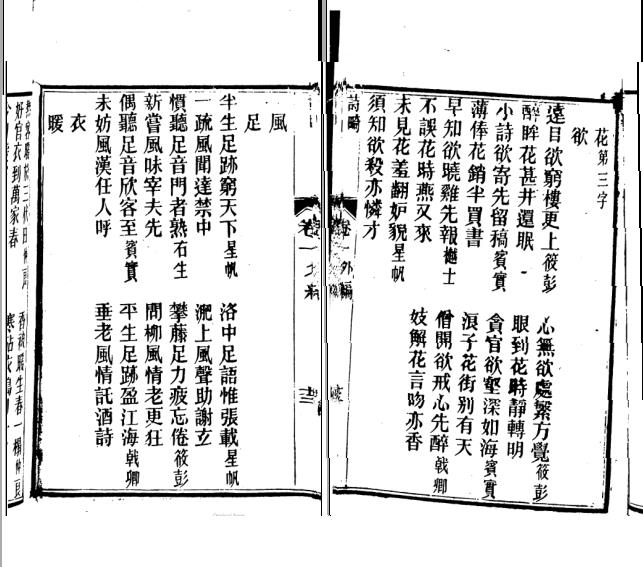 花第三字
欲
遠目欲窮樓更上筱彭
心無欲處繁方覺筱彭
醉眸花甚井還眠
眼到花時靜轉明
小詩欲寄先留稿賓實
貪官欲壑深如海賓實
薄俸花銷半買書
浪子花街别有天
早知欲曉雞先報樾士
僧開欲戒心先醉戟卿
不誤花時燕又來
妓解花言吻亦香
未見花羞翻妒貌星帆
須知欲殺亦憐才
詩畸
卷一外編
風
足
半生足跡窮天下星帆
洛中足語惟張載星帆
一疏風聞達禁中
淝上風聲助謝玄
慣聽足音門者熟石生
攀藤足力疲忘倦筱彭
新嘗風味宰夫先
問柳風情老更狂
偶聽足音欣客至賓實
平生足跡盈江海戟卿
未妨風漢任人呼
垂老風情託酒詩
衣
暖